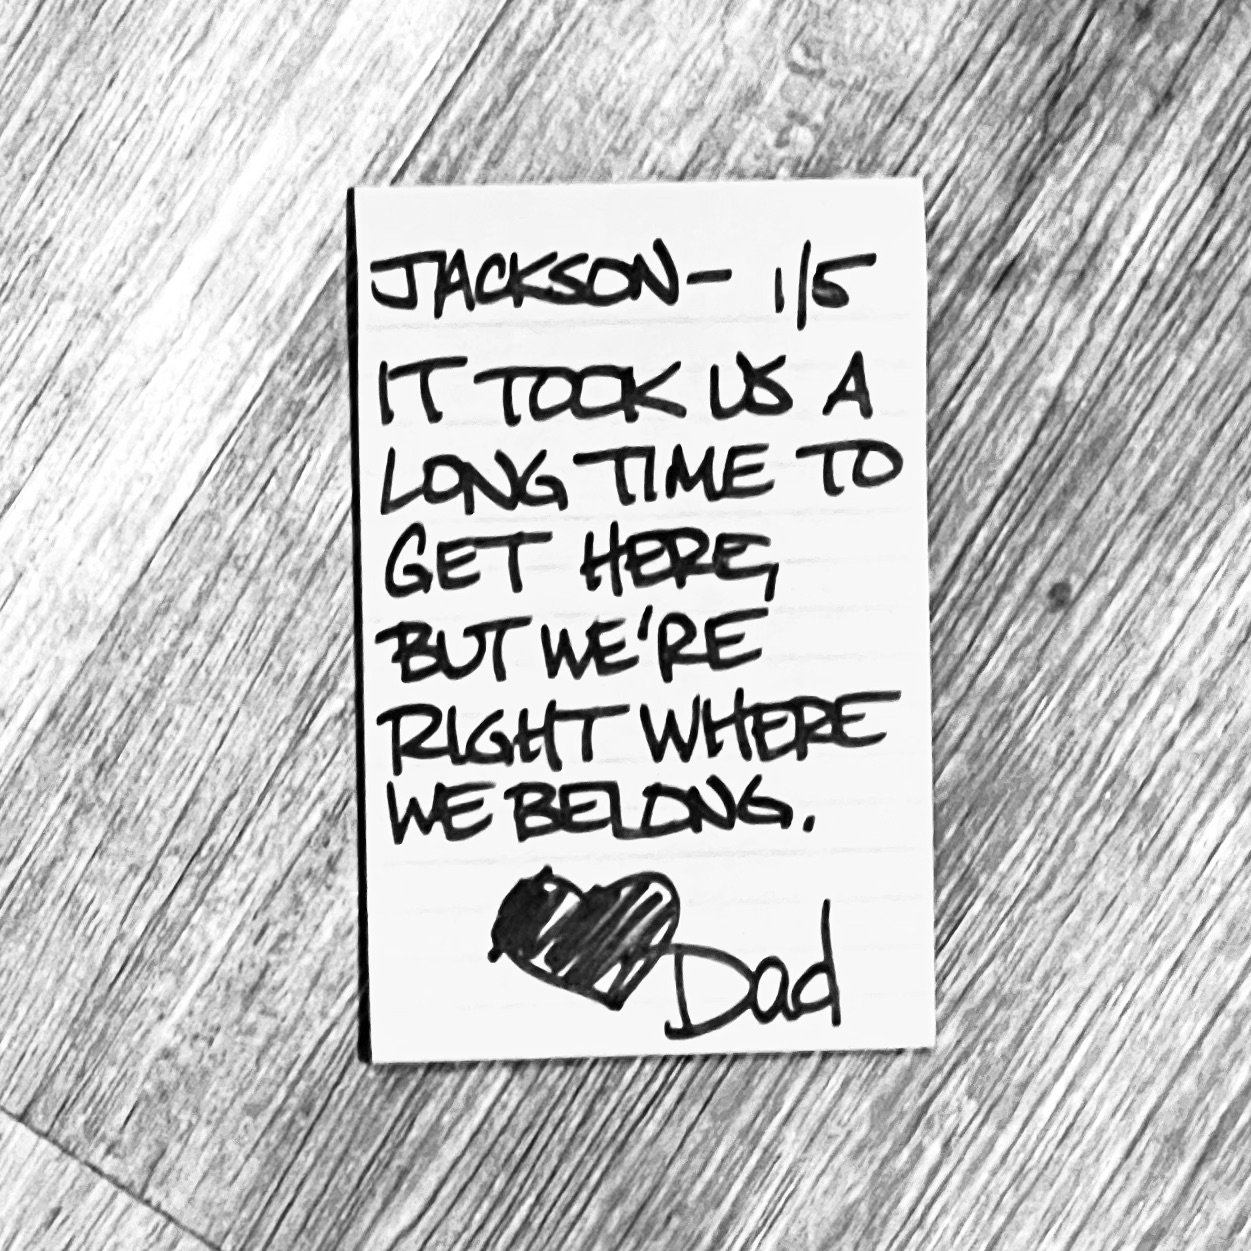 JACKSON- 1/5
IT TOOK US A
LONG TIME TO
GET HERE,
BUT WE'RE
RIGHT WHERE
WE BELONG.
Dad